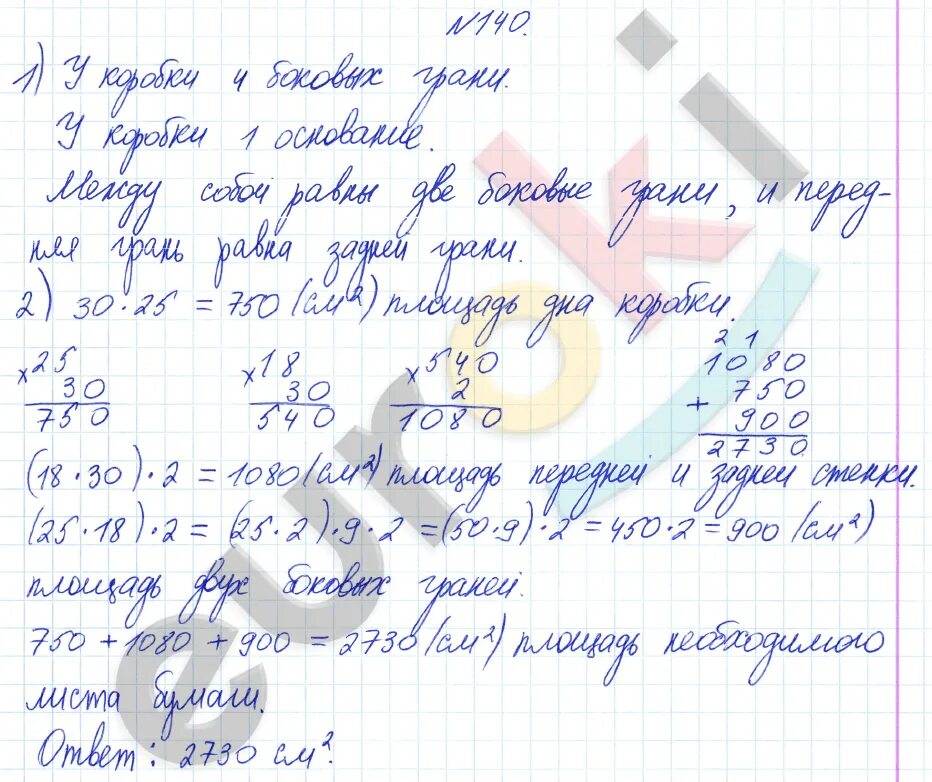 №140.
1) У коробки 4 боковых грани.
У коробки 1 основание.
Между собой равны две боковые грани, и перед-
няя грань равна задней грани.
2) 30·25 = 750 (см²) площадь дна коробки.
×25 ×18 ×540 2 1
30 30 2 1080
750 540 1080 + 750
900
2730
(18·30)·2 = 1080 (см²) площадь передней и задней стенки.
(25·18)·2 = (25·2)·9·2 = (50·9)·2 = 450·2 = 900 (см²)
площадь двух боковых граней.
750 + 1080 + 900 = 2730 (см²) площадь необходимого
листа бумаги.
Ответ: 2730 см².
euroki